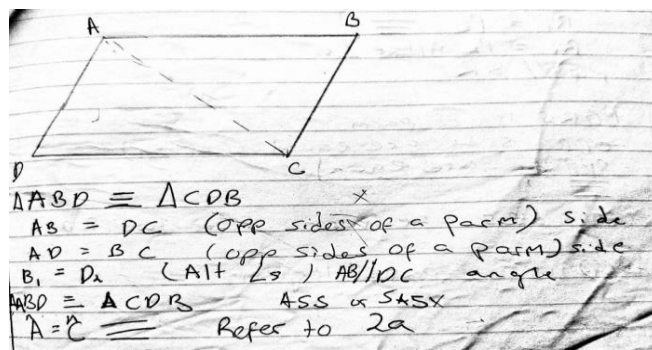 A B
D C
ΔABD ≡ ΔCDB x
AB = DC (opp sides of a parm) side
AD = BC (opp sides of a parm) side
B₁ = D₂ (Alt ∠s) AB//DC angle
ΔABD ≡ ΔCDB ASS or SAS X
Â = Ĉ Refer to 2a